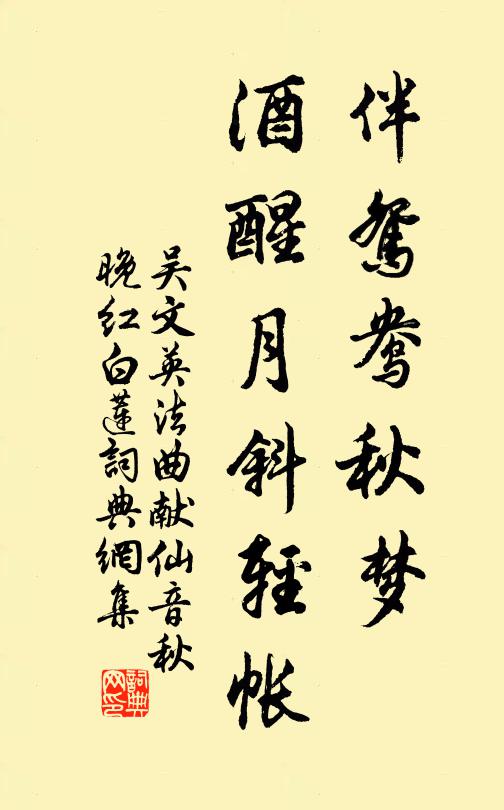 伴鸳鸯秋梦
酒醒月斜轻帐
吴文英法曲献仙音秋
晚红白莲词典网集
词典
网印